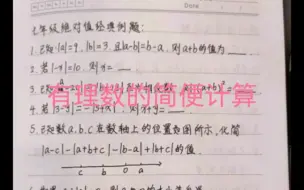 Date
七年级绝对值经典例题:
1. 已知|a|=9, |b|=3, 且|a-b|=b-a, 则a+b的值为
2. 若|-y|=10, 则y=
有理数的简便计算
4. 若|3-y|=-|5+x|, 则x+y=
5. 已知数a.b.c在数轴上的位置如图所示, 化简
|a-c|-|a+b+c|-|b-a|+|b+c|的值.
c b 0 a